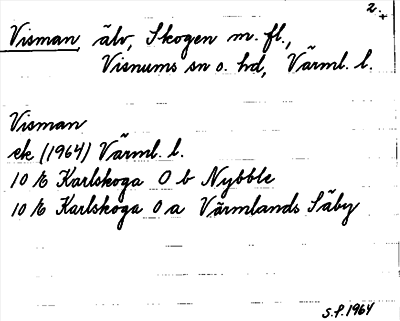 2.
Visman, älv, Skogen m. fl.,
Visnums sn o. hd, Värml. l.
Visman
ek (1964) Värml. l.
10 E Karlskoga 0 b Nybble
10 E Karlskoga 0 a Värmlands Säby
S.P. 1964